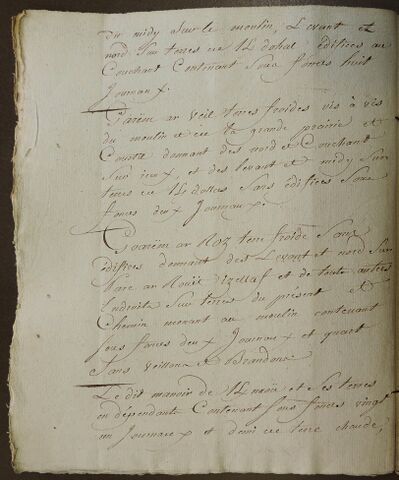 du midy sur le moulin, Levant et
nord sur terres de édifices au
Couchant Contenant sous fonces huit
Journaux.
Parem ar veil terres froides vis à vis
du moulin et de la grande prairie et
donnant des nord et Couchant
sur et des levant et midy sur
terres de sans édifices sous
fonces deux Journaux.
Parem ar Roz terre froide sans
édifices donnant des Levant et nord sur
Parc ar et de toutes autres
Endroits sur terres du présent et
Chemin menant au moulin contenant
sous fonces deux Journaux et quart
sans et
Le dit manoir de et ses terres
en dépendante Contenant sous fonces vingt
un Journaux et demi de terre chaude,